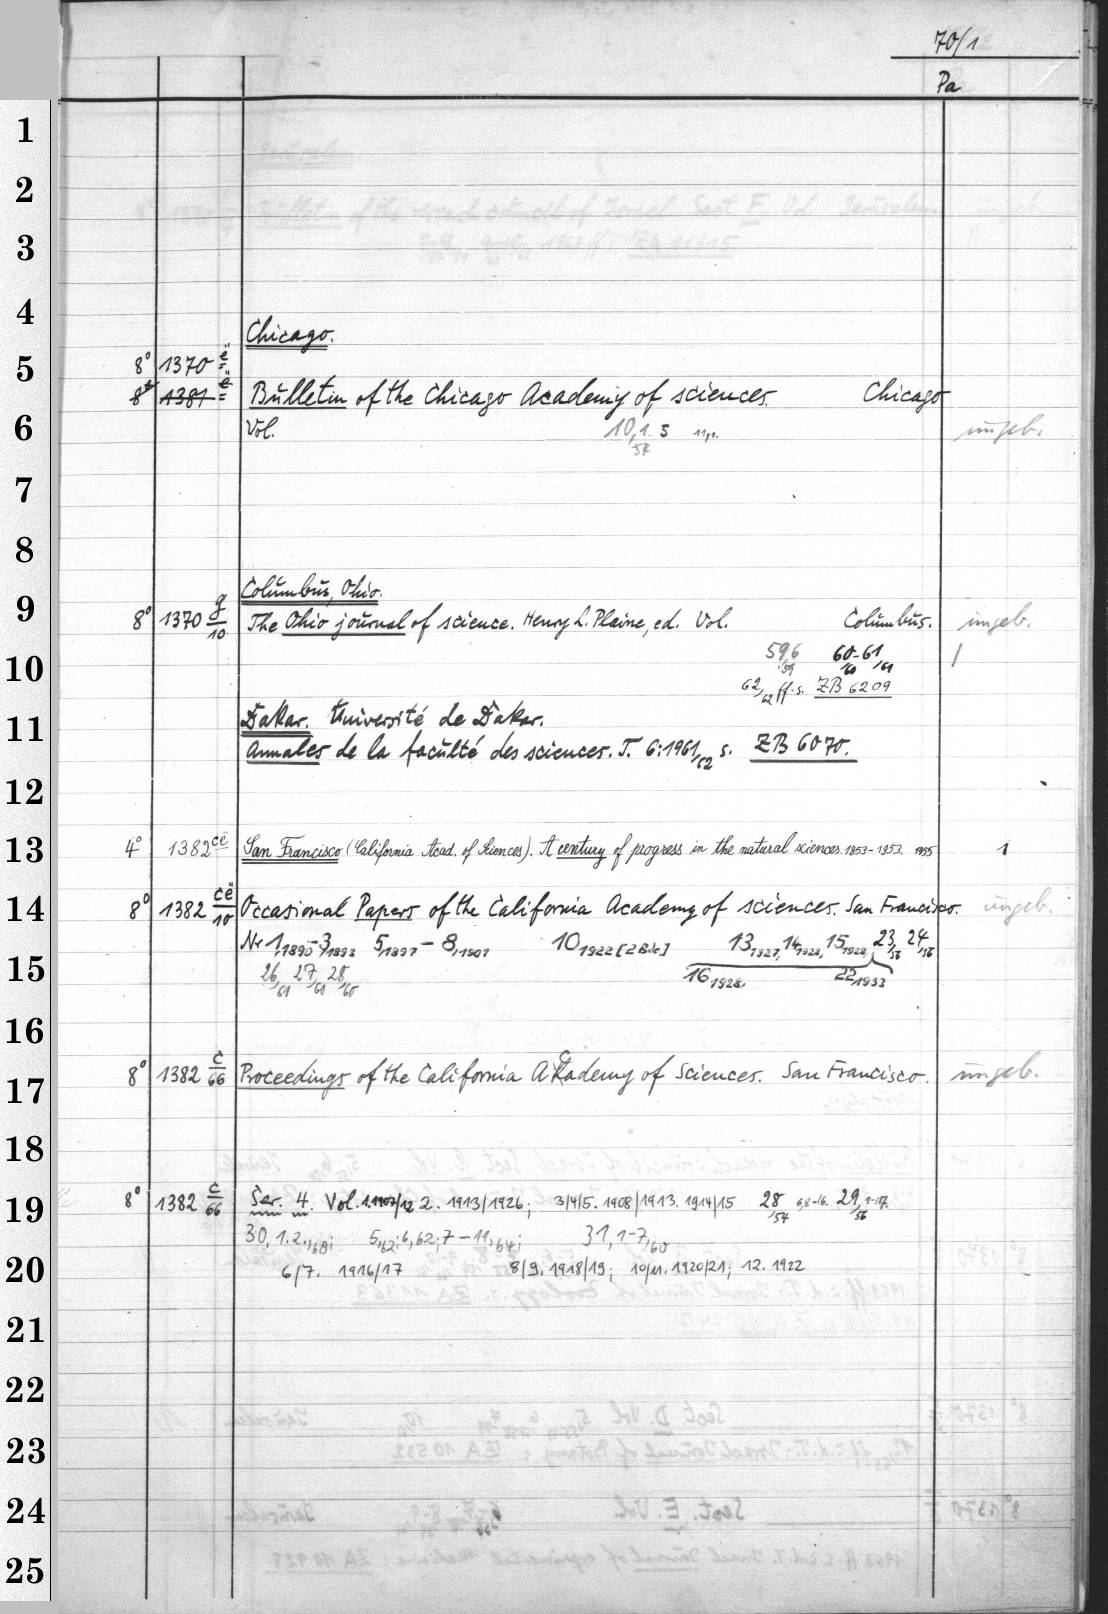 70/1
Pa
1
2
3
4 Chicago.
5 8° 1370 ë
8° 1381 ë Bulletin of the Chicago Academy of sciences. Chicago
6 Vol. 10,1. s 11,1. ungeb.
54
7
8
Columbus, Ohio.
9 8° 1370 g/10 The Ohio journal of science. Henry L. Plaine, ed. Vol. Columbus. ungeb.
59,6 59 60-61 60 61 |
10 62,62 ff. s. ZB 6209
11 Dakar. Université de Dakar.
Annales de la faculté des sciences. T. 6:1961/62 s. ZB 6070.
12
13 4° 1382 cë San Francisco (California Acad. of Sciences). A century of progress in the natural sciences. 1853-1953. 1955 1
14 8° 1382 cë/10 Occasional Papers of the California Academy of sciences. San Francisco. ungeb.
Nr 1,1890-3,1893 5,1897 - 8,1901 10 1922 [2 Bde] 13,1927, 14,1928, 15,1928, 23,56 24,56
15 26,61 27,61 28,60 16 1928 22,1933
16
17 8° 1382 c/66 Proceedings of the California Academy of Sciences. San Francisco. ungeb.
18
19 8° 1382 c/66 Ser. 4. Vol. 1.1907/12 2. 1913/1926; 3/4/5. 1908/1913. 1914/15 28,54 6,8-16. 29,56 1-17.
30,1.2.,60; 5,62; 6,62; 7-11,64; 31,1-7,60
20 6/7. 1916/17 8/9. 1918/19; 10/11. 1920/21; 12. 1922
21
22
23
24
25